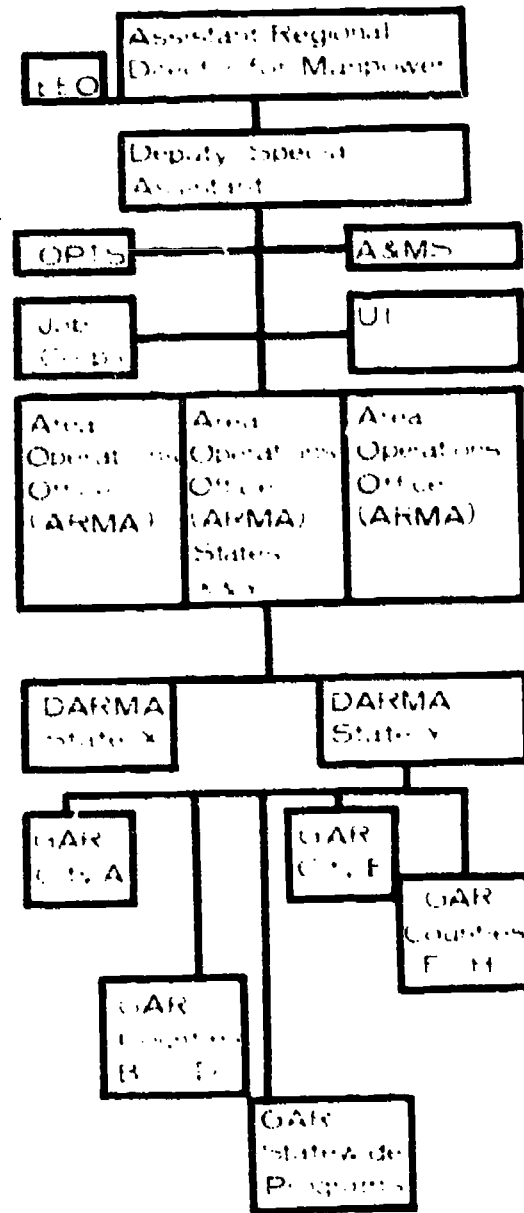 Assistant Regional
Director for Manpower
EEO
Deputy Special
Assistant
OPTS
A&MS
Job
Corps
UI
Area
Operations
Office
(ARMA)
Area
Operations
Office
(ARMA)
States
Area
Operations
Office
(ARMA)
DARMA
State X
DARMA
State Y
GAR
City A
GAR
City E
GAR
Counties
F H
GAR
Counties
B D
GAR
Statewide
Programs